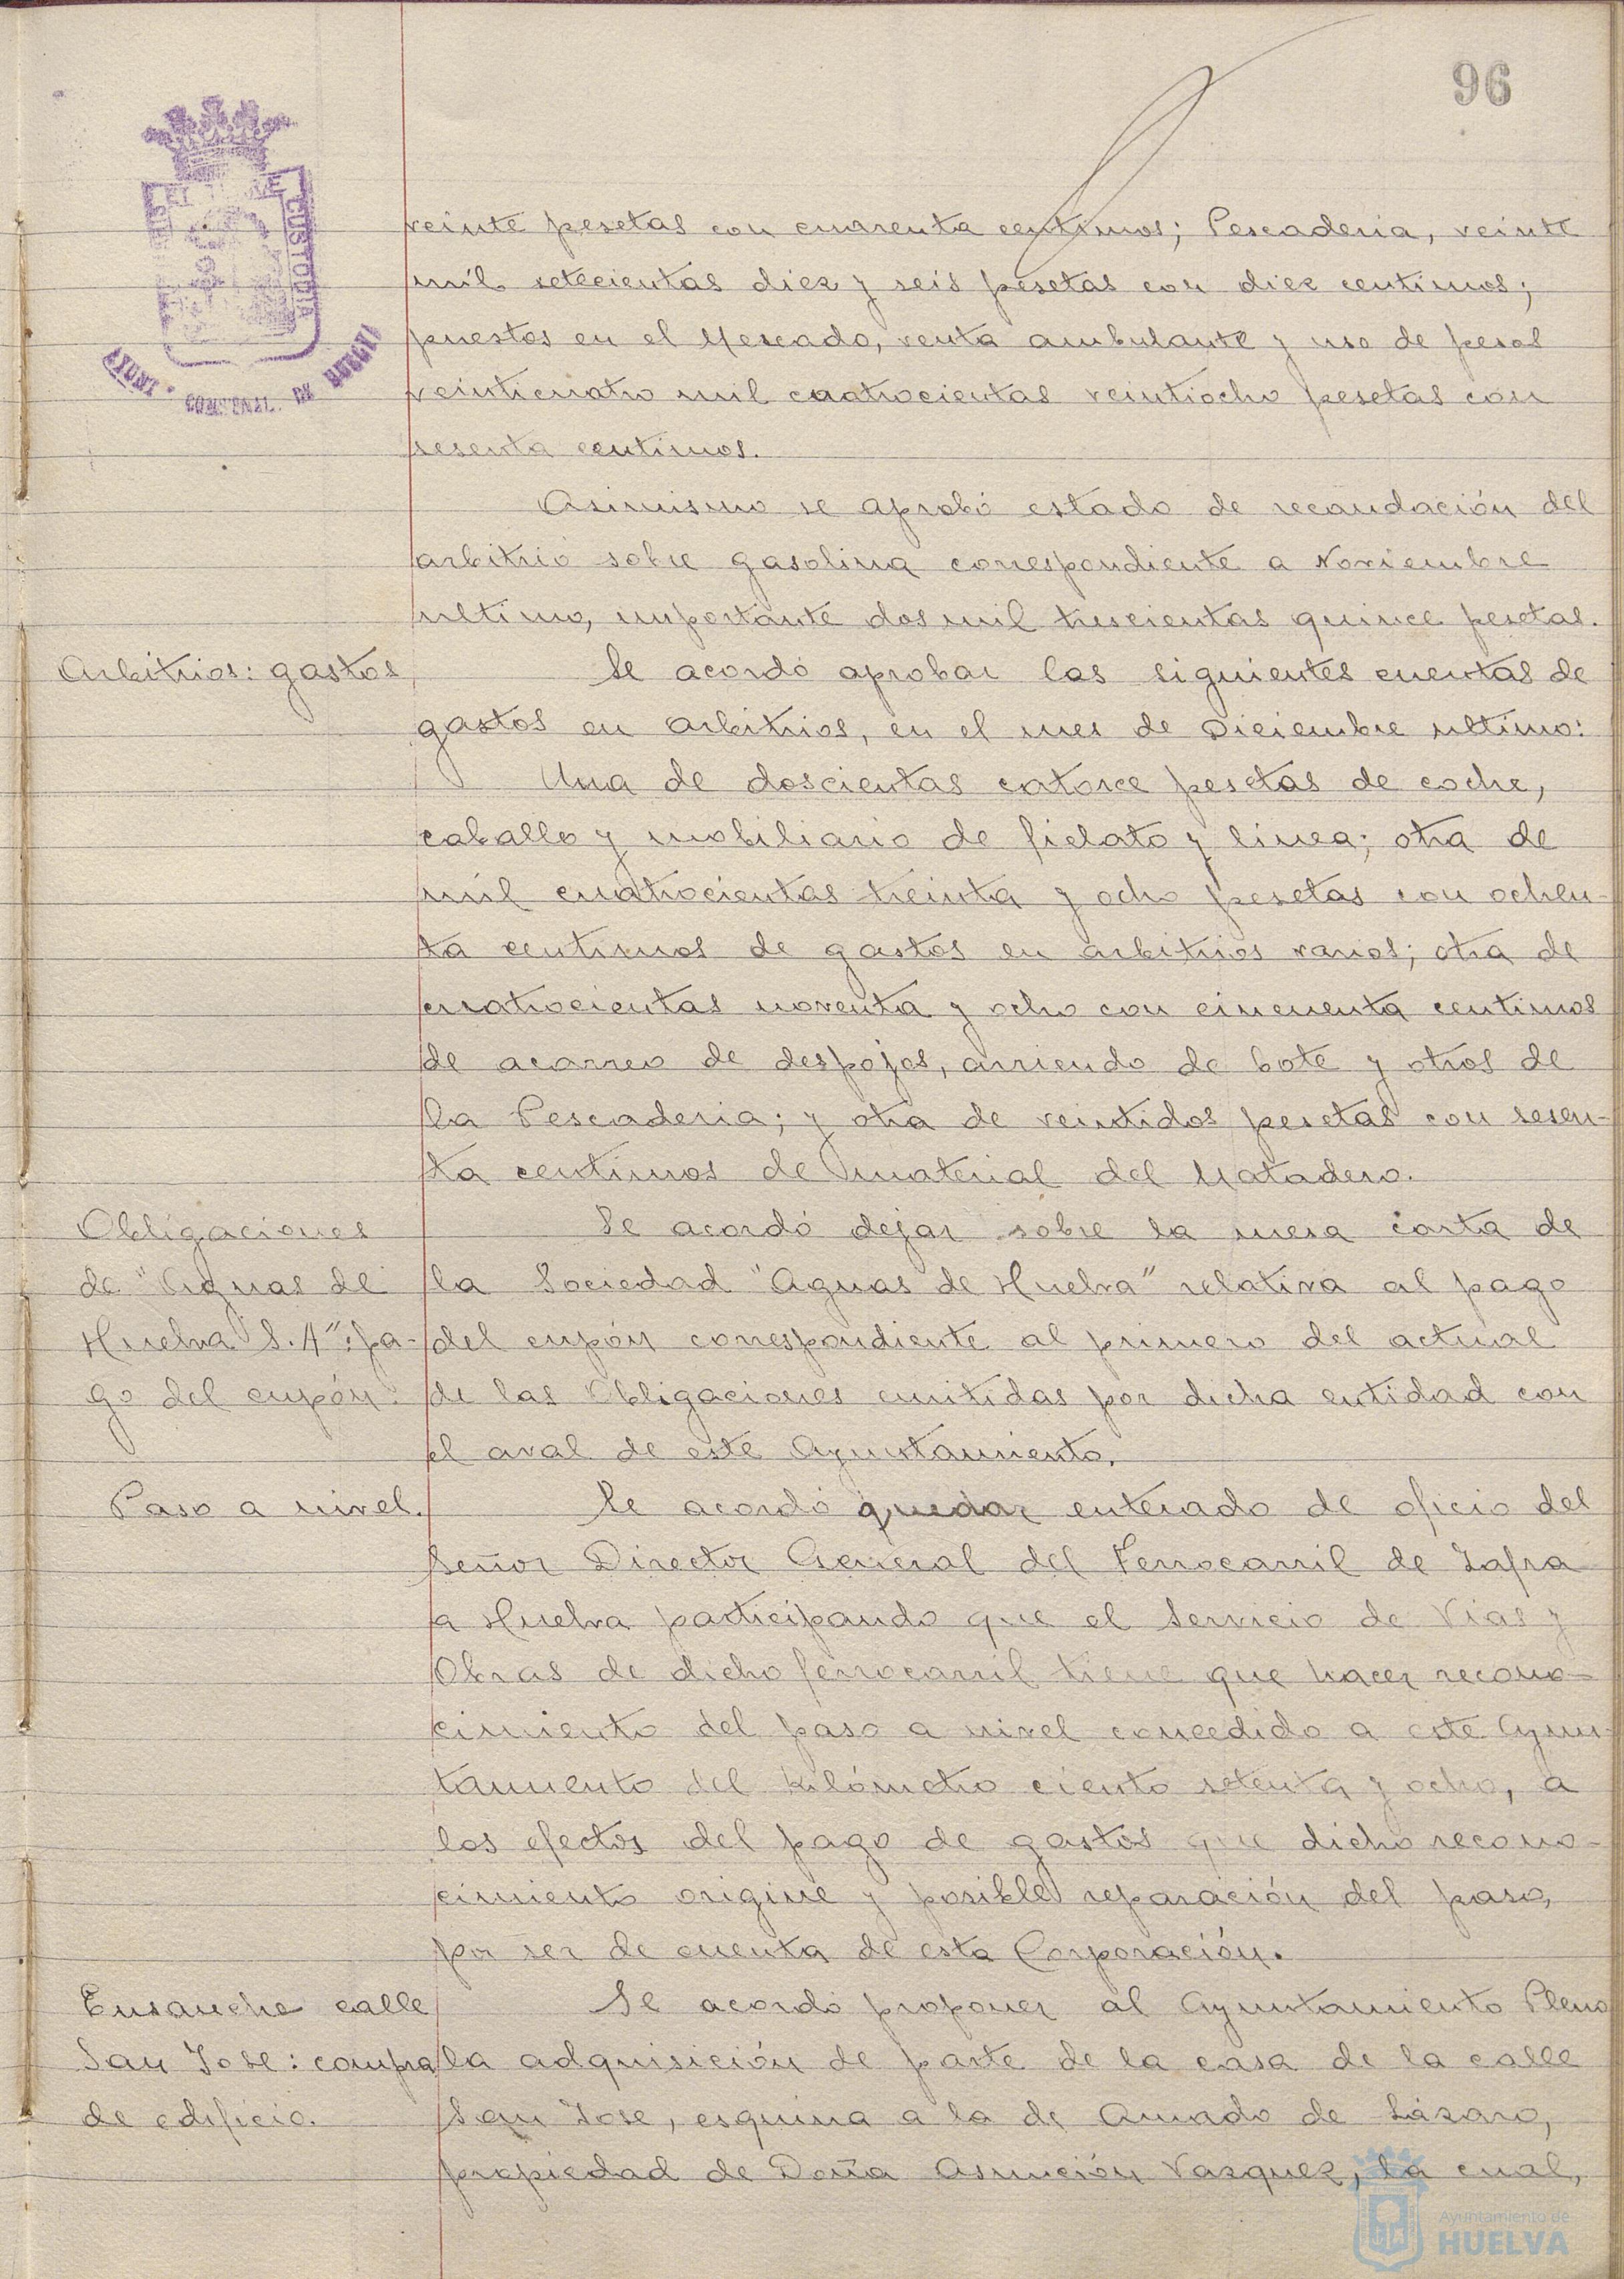 96
CUSTODIA
AYUNT. CONST'ENAL. DE HUELVA
veinte pesetas con cuarenta centimos; Pescaderia, veinte
mil setecientas diez y seis pesetas con diez centimos;
puestos en el Mercado, venta ambulante y uso de pesas
veinticuatro mil cuatrocientas veintiocho pesetas con
sesenta centimos.
Asimismo se aprobó estado de recaudación del
arbitrio sobre gasolina correspondiente a Noviembre
ultimo, importante dos mil trescientas quince pesetas.
Arbitrios: gastos
Se acordó aprobar las siguientes cuentas de
gastos en arbitrios, en el mes de Diciembre ultimo:
Una de doscientas catorce pesetas de coche,
caballo y mobiliario de fielato y linea; otra de
mil cuatrocientas treinta y ocho pesetas con ochen-
ta centimos de gastos en arbitrios varios; otra de
cuatrocientas noventa y ocho con cincuenta centimos
de acarreo de despojos, arriendo de bote y otros de
la Pescaderia; y otra de veintidos pesetas con sesen-
ta centimos de material del Matadero.
Obligaciones
de "Aguas de
Huelva S.A": pa-
go del cupón.
Se acordó dejar sobre la mesa carta de
la Sociedad "Aguas de Huelva" relativa al pago
del cupón correspondiente al primero del actual
de las Obligaciones emitidas por dicha entidad con
el aval de este Ayuntamiento.
Paso a nivel.
Se acordó quedar enterado de oficio del
Señor Director General del Ferrocarril de Zafra
a Huelva participando que el Servicio de Vias y
Obras de dicho ferrocarril tiene que hacer recono-
cimiento del paso a nivel concedido a este Ayun-
tamiento del kilómetro ciento setenta y ocho, a
los efectos del pago de gastos que dicho recono-
cimiento origine y posible reparación del paso,
por ser de cuenta de esta Corporación.
Ensanche calle
San Jose: compra
de edificio.
Se acordó proponer al Ayuntamiento Pleno
la adquisición de parte de la casa de la calle
San Jose, esquina a la de Amado de Lázaro,
propiedad de Doña Asunción Vazquez, la cual,
Ayuntamiento de
HUELVA